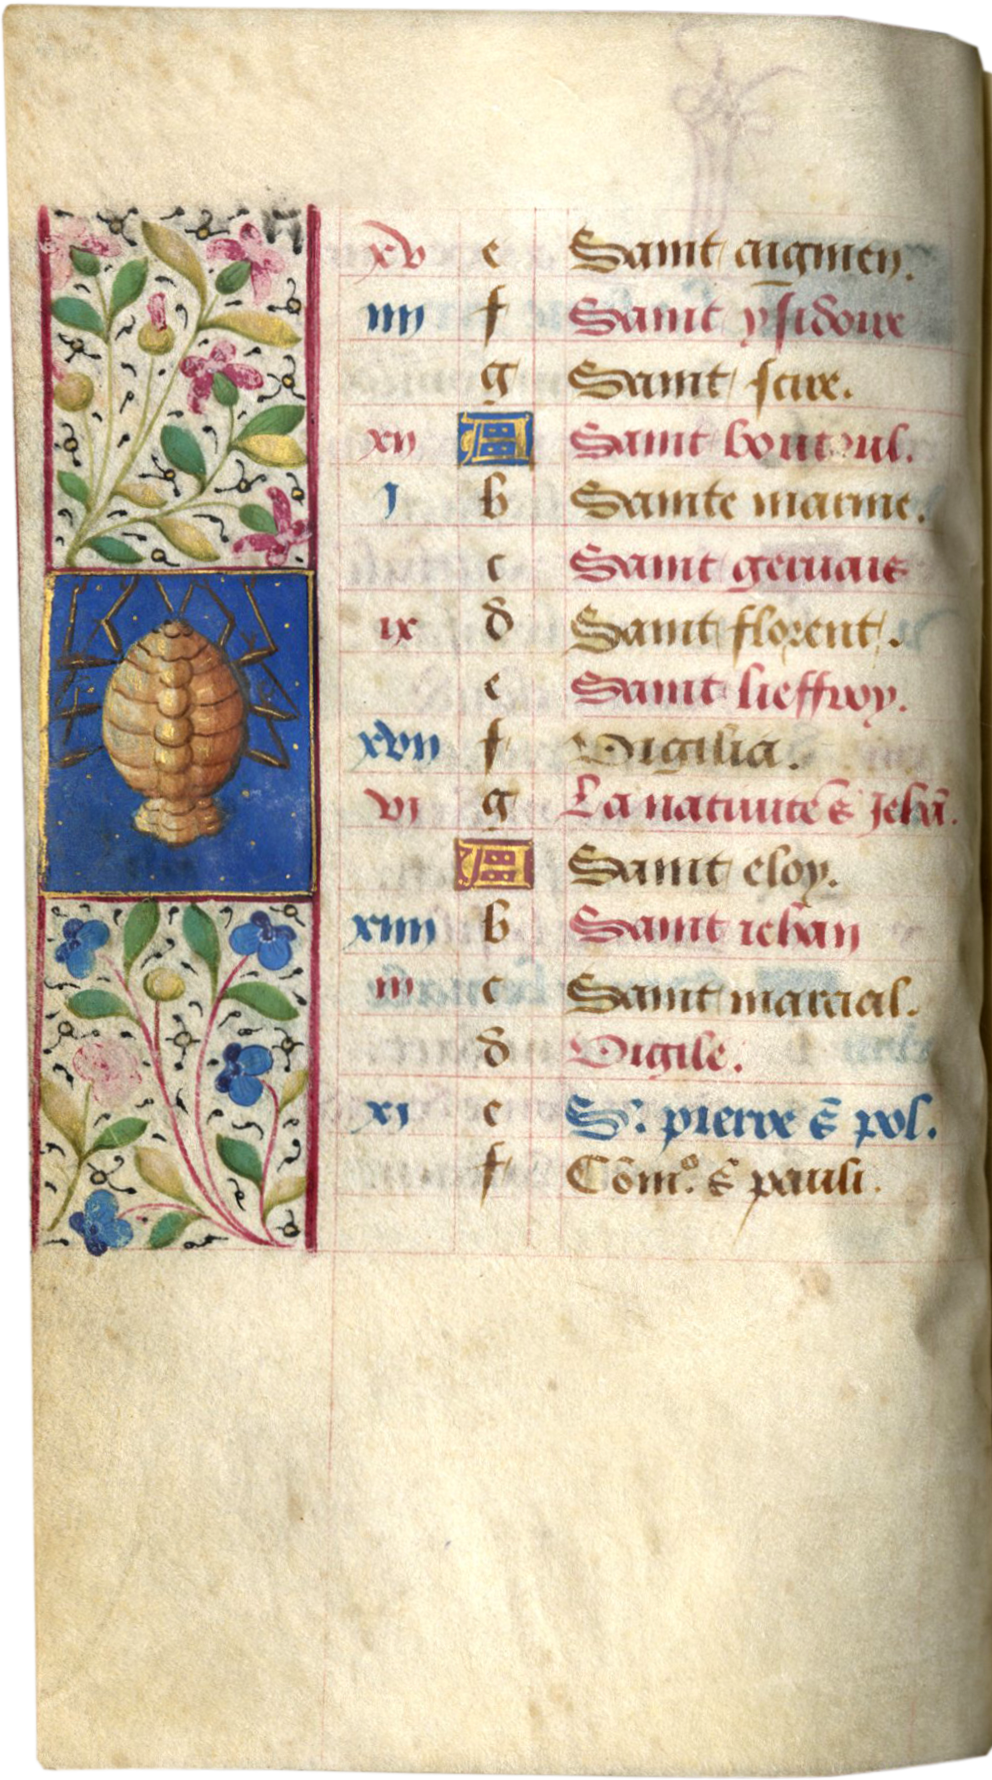 xv e Saint aignien.
iiii f Saint ysidoire
g Saint fere.
xii A Saint boutoul.
i b Sainte marine.
c Saint geruais
ix d Saint florent.
e Saint lieffroy.
xvii f Vigilia.
vi g La natiuite s Jehã.
A Saint eloy.
xiiii b Saint iehan
iii c Saint marcial.
d Vigile.
xi e S. pierre s pol.
f Cõm.º s pauli.